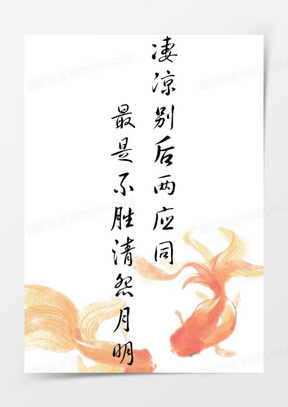 凄凉别后两应同
最是不胜清怨月明